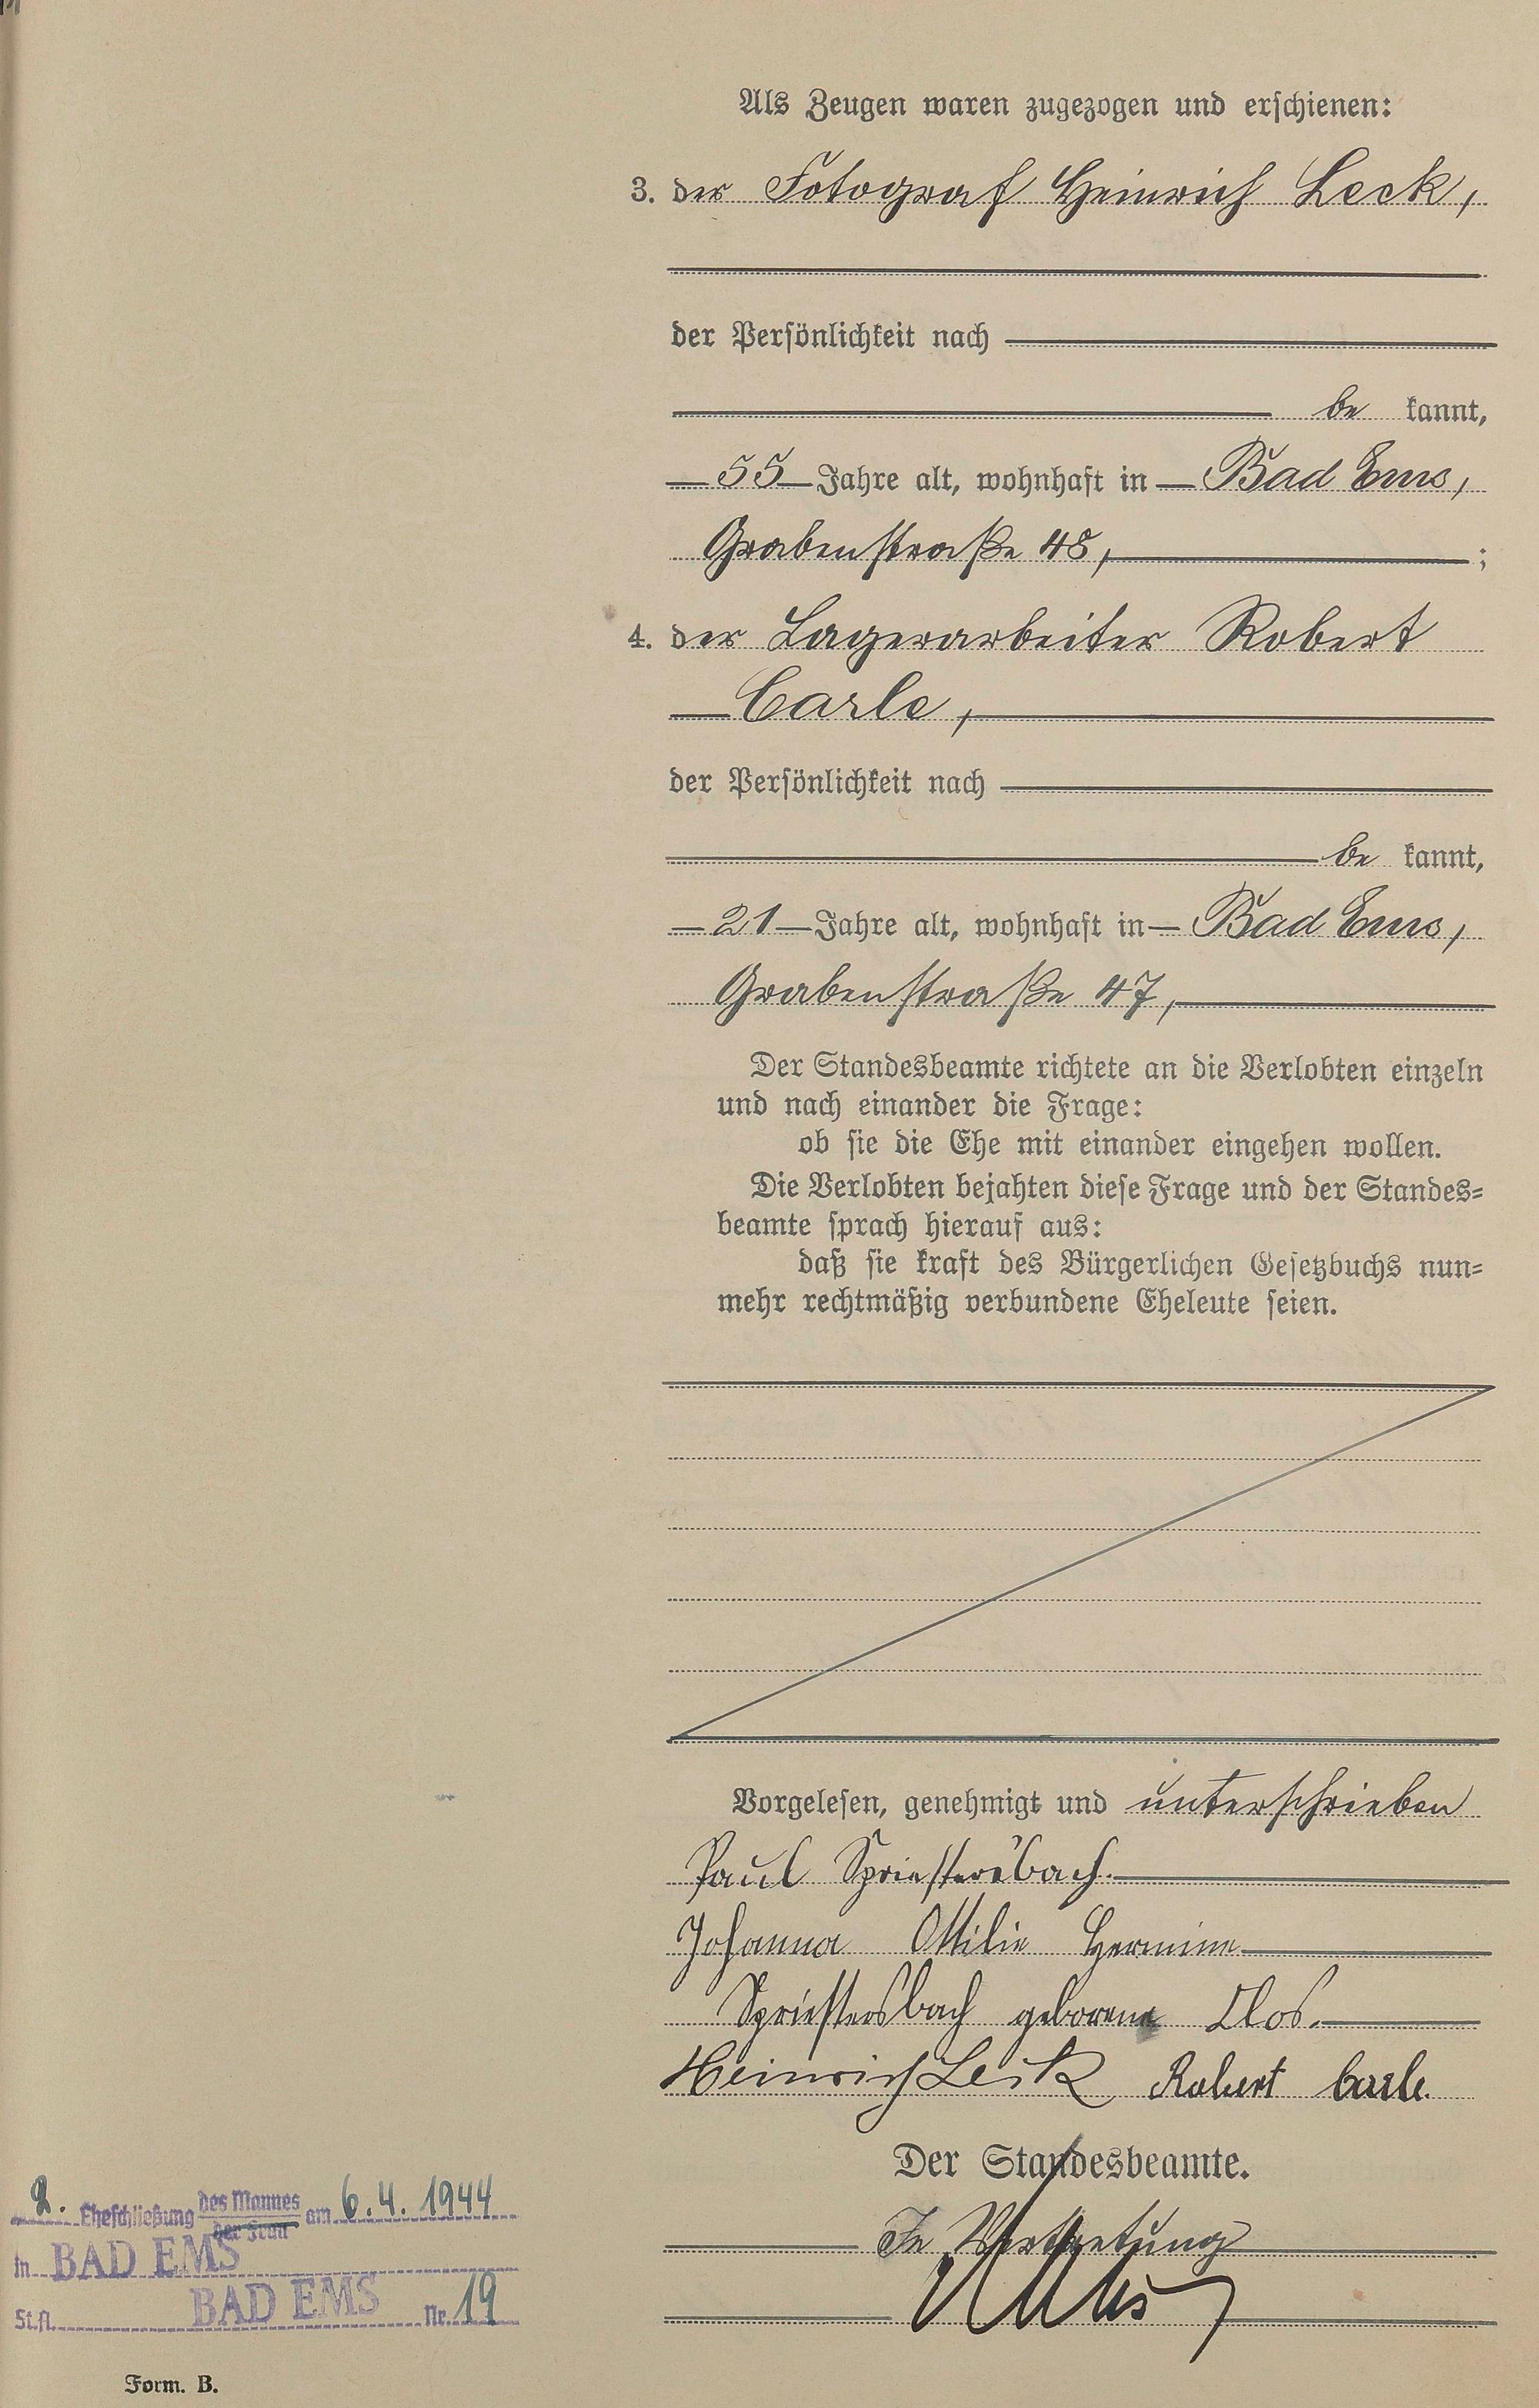 Als Zeugen waren zugezogen und erschienen:
3. der Fotograf Heinrich Leck,
der Persönlichkeit nach
be kannt,
55 Jahre alt, wohnhaft in Bad Ems,
Grabenstraße 48, ;
4. der Lagerarbeiter Robert
Carle,
der Persönlichkeit nach
be kannt,
21 Jahre alt, wohnhaft in Bad Ems,
Grabenstraße 47,
Der Standesbeamte richtete an die Verlobten einzeln
und nach einander die Frage:
ob sie die Ehe mit einander eingehen wollen.
Die Verlobten bejahten diese Frage und der Standes-
beamte sprach hierauf aus:
daß sie kraft des Bürgerlichen Gesetzbuchs nun-
mehr rechtmäßig verbundene Eheleute seien.
Vorgelesen, genehmigt und unterschrieben
Paul Spriestersbach.
Johanna Ottilie Hermine
Spriestersbach geborene Clos.
Heinrich Leck Robert Carle.
Der Standesbeamte.
In Vertretung
2. Eheschließung des Mannes der Frau am 6.4.1944
in BAD EMS
St.A. BAD EMS Nr. 19
Form. B.